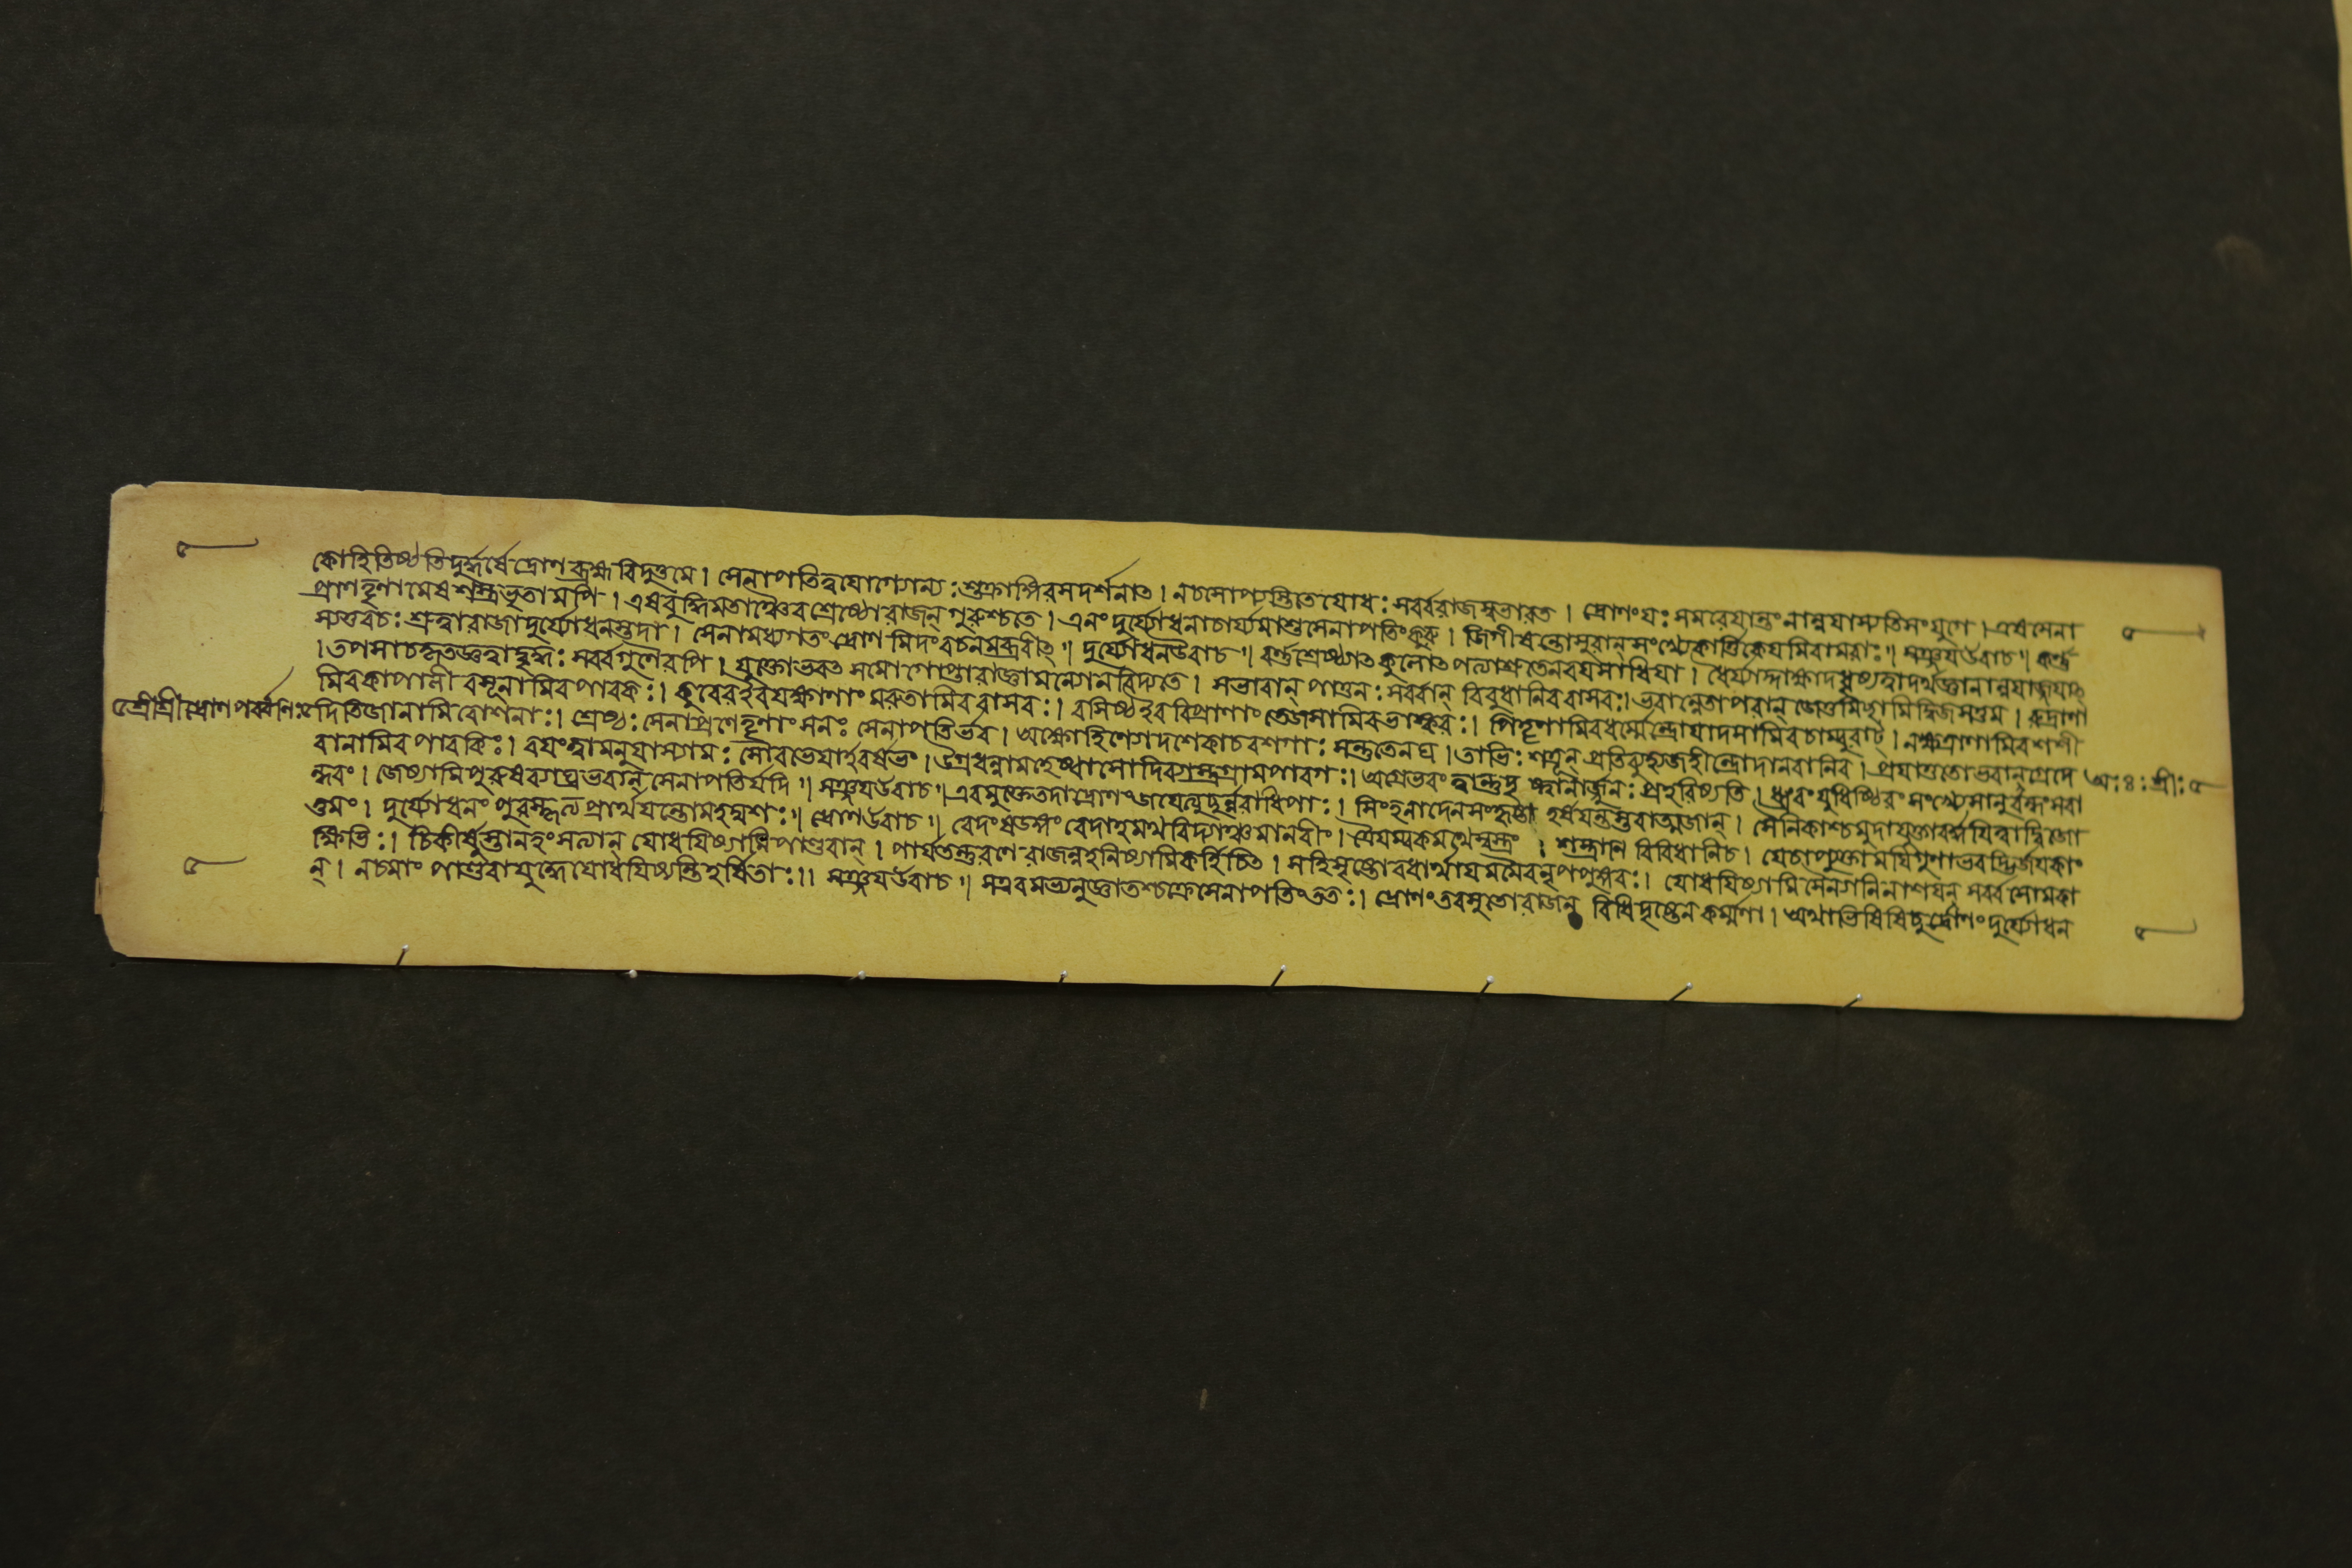 কোহিতিষ্ঠতিদুর্দ্ধর্ষে দ্রোণে ব্রহ্মবিদুত্তমে । সেনাপতিত্বযোগ্যোন্যঃ শুক্রাঙ্গিরসদর্শনাত । নচসোপ্যস্তিতেযোধঃ সর্ব্বরাজসুভারত । দ্রোণংযঃ সমরেযান্তং নানুযাস্যতিসংযুগে । এষসেনা
প্রাণতৃণামেষশস্ত্রভৃতামপি । এষবুদ্ধিমতাঞ্চৈব শ্রেষ্ঠোরাজন্ গুরুশ্চতে । এনং দুর্য্যোধনাচার্য্যমাশুসেনাপতিংকুরু । জিগীষন্তোসুরান্ সংখ্যেকার্ত্তিকেযমিবামরাঃ ॥ সঞ্জযউবাচ ॥ কর্ণ্ণ
স্যতবচঃ শ্রুত্বারাজাদুর্য্যোধনস্তদা । সেনামধ্যগতং দ্রোণমিদংবচনমব্রবীত্ ॥ দুর্য্যোধনউবাচ ॥ বর্ণ্ণশ্রেষ্ঠ্যাত কুলোতপত্যাশ্রুতেনবযসাধিযা । ধৈর্য্যাদ্দাক্ষ্যাদধৃষ্যত্বাদর্থজ্ঞানান্নযাজ্জযাত
। তপসাচকৃতজ্ঞত্বাদ্বৃদ্ধিঃ সর্ব্বগুণৈরপি । যুক্তোভবত সমোগোপ্তারাজ্ঞামন্যোনবিদ্যতে । সভাবান্ পাতুনঃ সর্ব্বান্ বিবুধানিববাসবঃ । ভবান্নেতাপরান্ জেতুমিচ্ছামিদ্বিজসত্তম । রুদ্রাণা
মিবকাপালী বসূনামিবপাবকঃ । কুবেরইবযক্ষাণাং মরুতামিববাসবঃ । বসিষ্ঠইববিপ্রাণাং তেজসামিবভাস্করঃ । পিতৃণামিবধর্ম্মেন্দ্রোযাদসামিবচাম্বুরাট্ । নক্ষত্রাণামিবশশী
৫শ্রীশ্রীদ্রোণপর্ব্বণিঃ৫ দিতিজানামিবোশনাঃ । শ্রেষ্ঠঃ সেনাপ্রণেতৃণাং সনঃ সেনাপতির্ভব । অক্ষৌহিণ্যোদশেকাচবশগাঃ সন্তুতেনঘ । তাভিঃ শত্রূন্ প্রতিব্যুহ্যজহীন্দ্রোদানবানিব । প্রযাতুতোভবান্নগ্রেদে অঃ৪ঃশ্রীঃ৫
বানামিবপাবকিঃ । বযংত্বামনুযাস্যামঃ সৌরভেযাইবর্ষভং । উগ্রধন্বামহেষ্বাসোদিব্যাস্ত্রগ্রামপারগঃ । অগ্রেভবং ত্বান্তুদৃ ষ্ট্বানার্জ্জুনঃ প্রহরিষ্যতি । ধ্রুবংযুধিষ্ঠিরং সংখ্যেসানুবন্ধংসবা
ন্ধবং । জেষ্যামিপুরুষব্যাঘ্রভবান্ সেনাপতির্যদি ॥ সঞ্জযউবাচ ॥ এবমুক্তেতদাদ্রোণং জযেত্যুচুর্ন্নরাধিপাঃ । সিংহনাদেনসংহৃষ্টা হর্ষযন্তস্তবাত্মজান্ । সৈনিকাশ্চমুদাযুক্তাবর্দ্ধযিত্বাদ্বিজো
ত্তমং । দুর্য্যোধনং পুরস্কৃত্য প্রার্থযন্তোমহদ্যশঃ ॥ দ্রোণউবাচ ॥ বেদংষডঙ্গং বেদাহমর্থবিদ্যাঞ্চমানবীং । ত্রৈযম্বকমথেষ্বস্ত্রং । শস্ত্রানি বিবিধানিচ । যেচাপ্যুক্তামযিগুণাভবদ্ভির্জযকাং
ক্ষিভিঃ । চিকীর্ষুস্তানহংসত্যান্ যোধযিষ্যামিপাণ্ডবান্ । পার্ষতন্তুরণে রাজন্নহনিষ্যামিকর্হিচিত । সহিসৃষ্টোবধার্থাযমমৈবনৃপপুঙ্গবঃ । যোধযিষ্যামিসৈন্যানিনাশযন্ সর্ব্বসোমকা
ন্ । নচমাং পাণ্ডবাযুদ্ধেযোধযিষ্যন্তিহর্ষিতাঃ ।। সঞ্জযউবাচ ॥ সএবমভ্যনুজ্ঞাতশ্চক্রেসেনাপতিংততঃ । দ্রোণংতবসুতোরাজন্ বিধিদৃষ্টেনকর্ম্মণা । অথাভিষিষিচুর্দ্রোণং দুর্য্যোধন